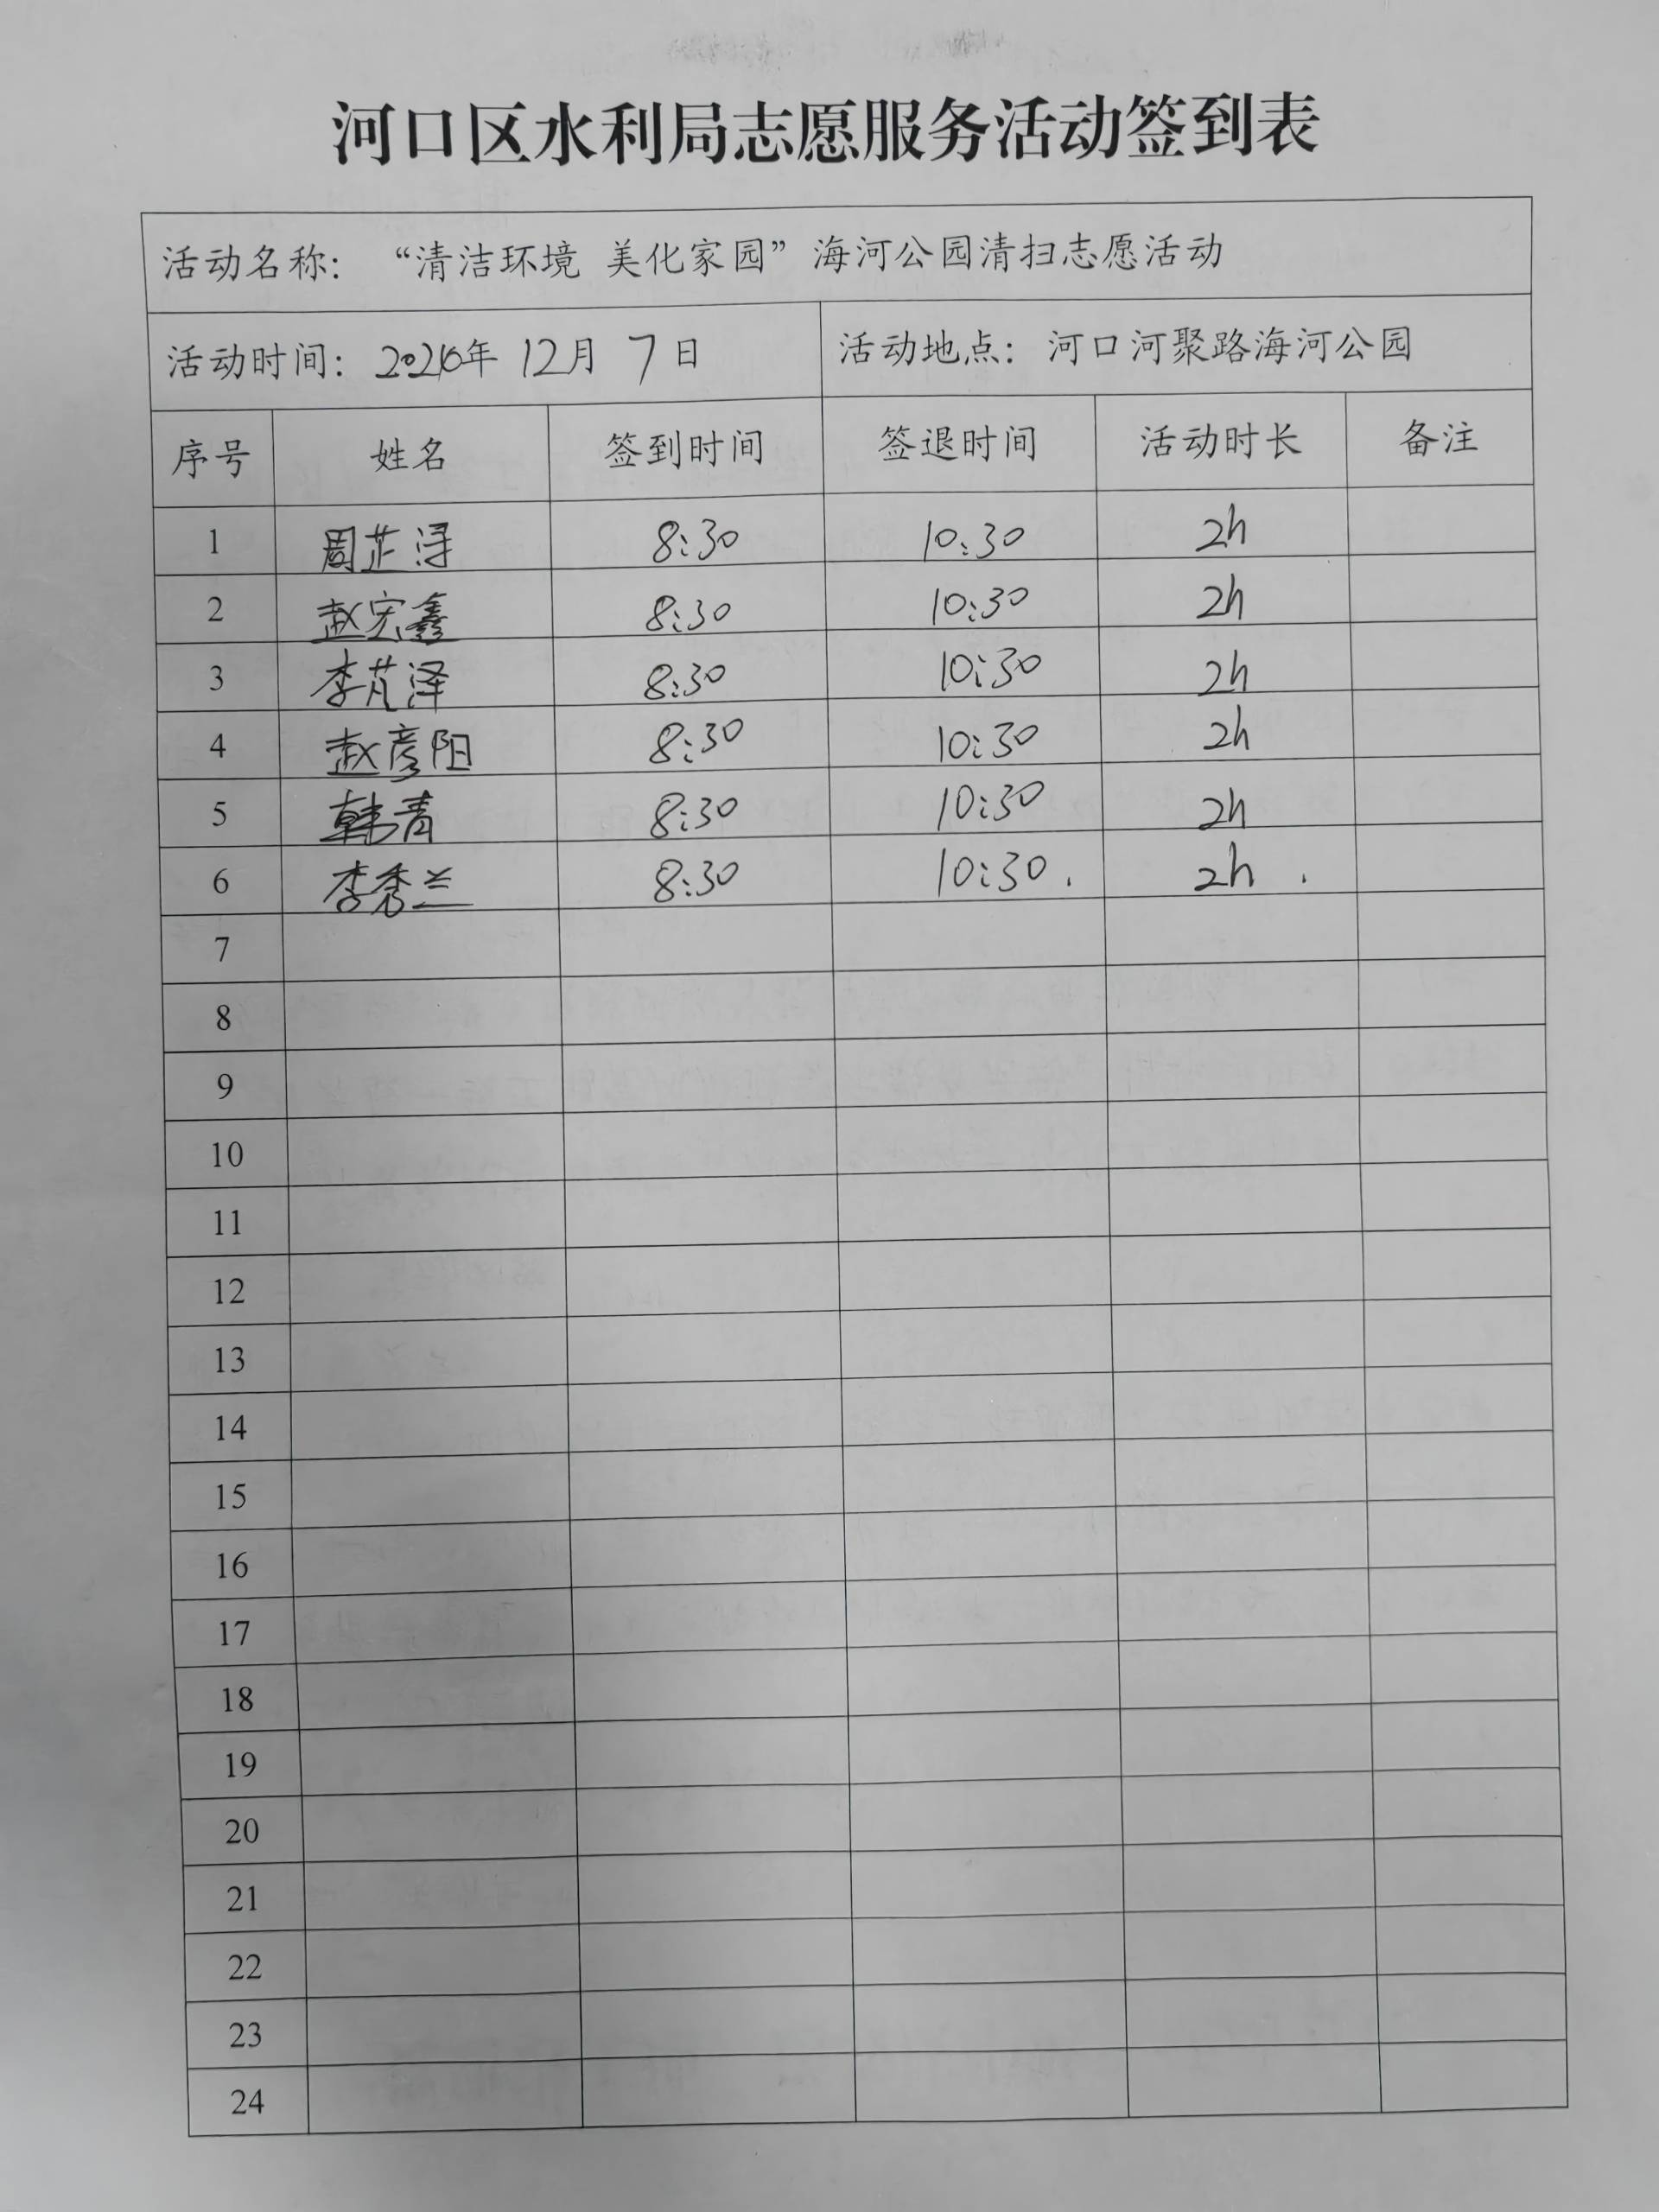 河口区水利局志愿服务活动签到表
活动名称：“清洁环境 美化家园”海河公园清扫志愿活动
活动时间：年 12月 7日 活动地点：河口河聚路海河公园
序号 姓名 签到时间 签退时间 活动时长 备注
1 周芷浔 8:30 10:30 2h
2 赵宏鑫 8:30 10:30 2h
3 李芃泽 8:30 10:30 2h
4 赵彦阳 8:30 10:30 2h
5 韩青 8:30 10:30 2h
6 李秀兰 8:30 10:30. 2h .
7
8
9
10
11
12
13
14
15
16
17
18
19
20
21
22
23
24